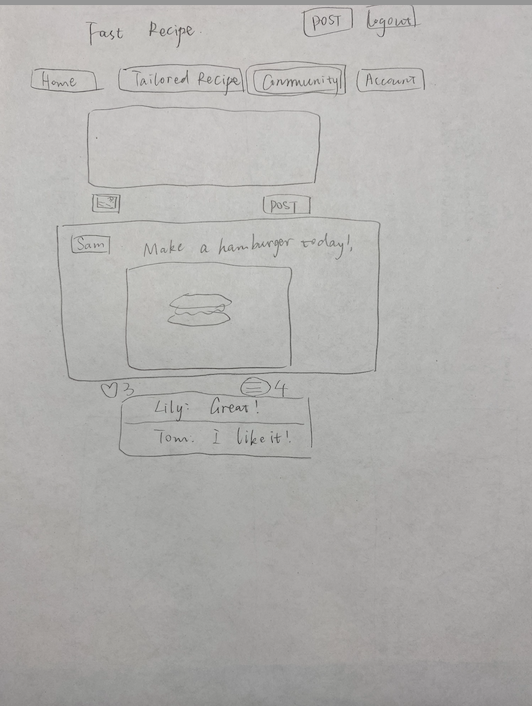 Fast Recipe.
POST Logout
Home Tailored Recipe Community Account
POST
Sam Make a hamburger today!
3 4
Lily: Great!
Tom. I like it!